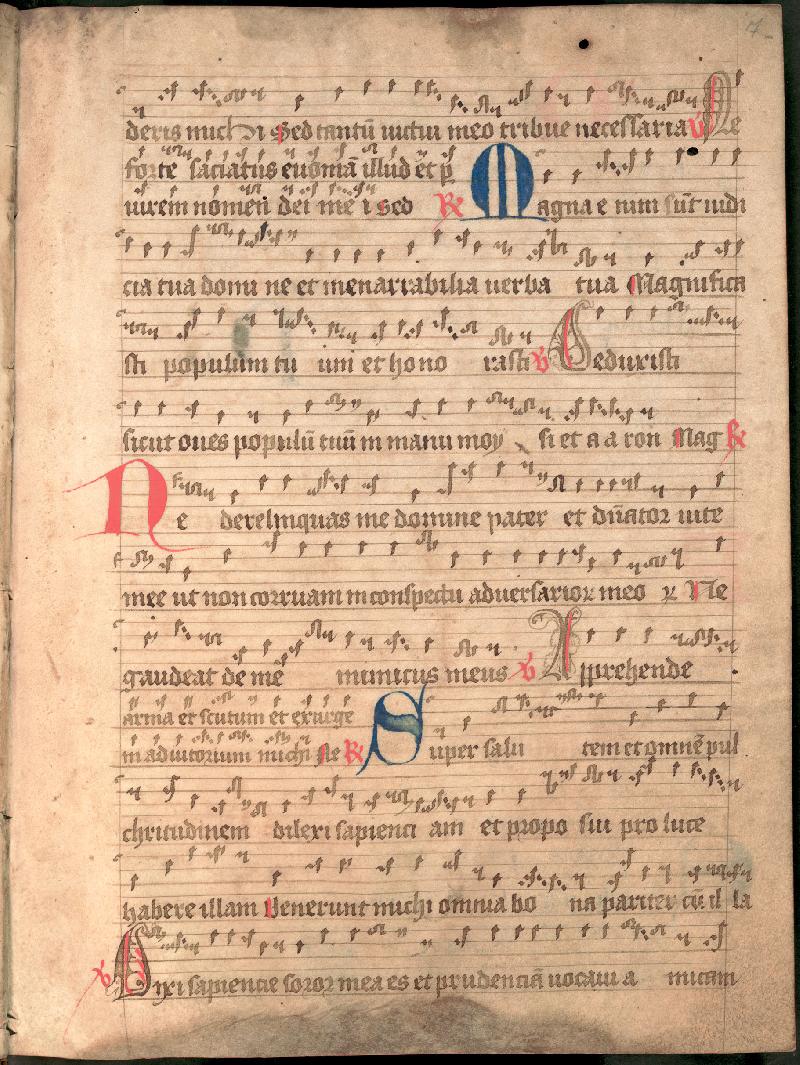 deris michi Sed tantū uictui meo tribue necessaria ꝟ Ne
forte saciatus euomā illud et ꝑ
iurem nomen dei me i sed ℟ Magna e nim sūt iudi
cia tua domi ne et inenarrabilia uerba tua Magnifica
sti populum tu um et hono rasti ꝟ Deduxisti
sicut oues populū tuū in manu moy si et a a ron Mag ℟
Ne derelinquas me domine pater et dn̄ator uite
mee ut non corruam in conspectu aduersarioꝝ meo ꝝ Ne
gaudeat de me inimicus meus ꝟ Apprehende
arma et scutum et exurge
in adiutorium michi Ne ℟ Super salu tem et omnē pul
chritudinem dilexi sapienci am et propo sui pro luce
habere illam Venerunt michi omnia bo na pariter cū il la
ꝟ Dixi sapiencie soror mea es et prudenciā uocaui a micam